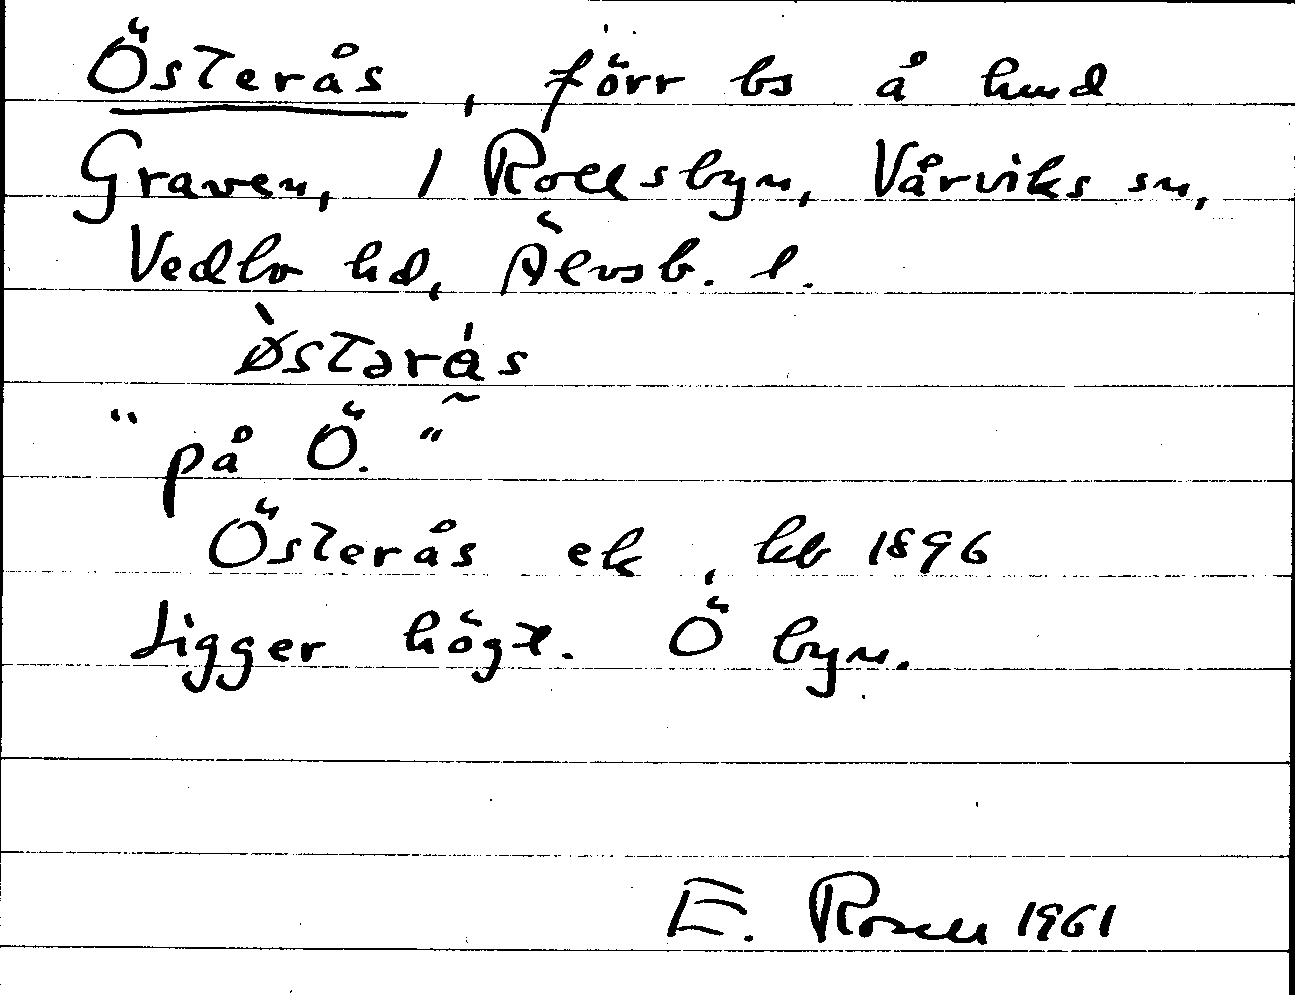 Österås, förr bs å hmd
Graven, 1 Rollsbyn, Vårviks sn,
Vedbo hd, Älvsb. l.
Ø̀stərás
"på Ö."
Österås ek, kb 1896
Ligger högt. Ö byn.
E. Rosell 1961